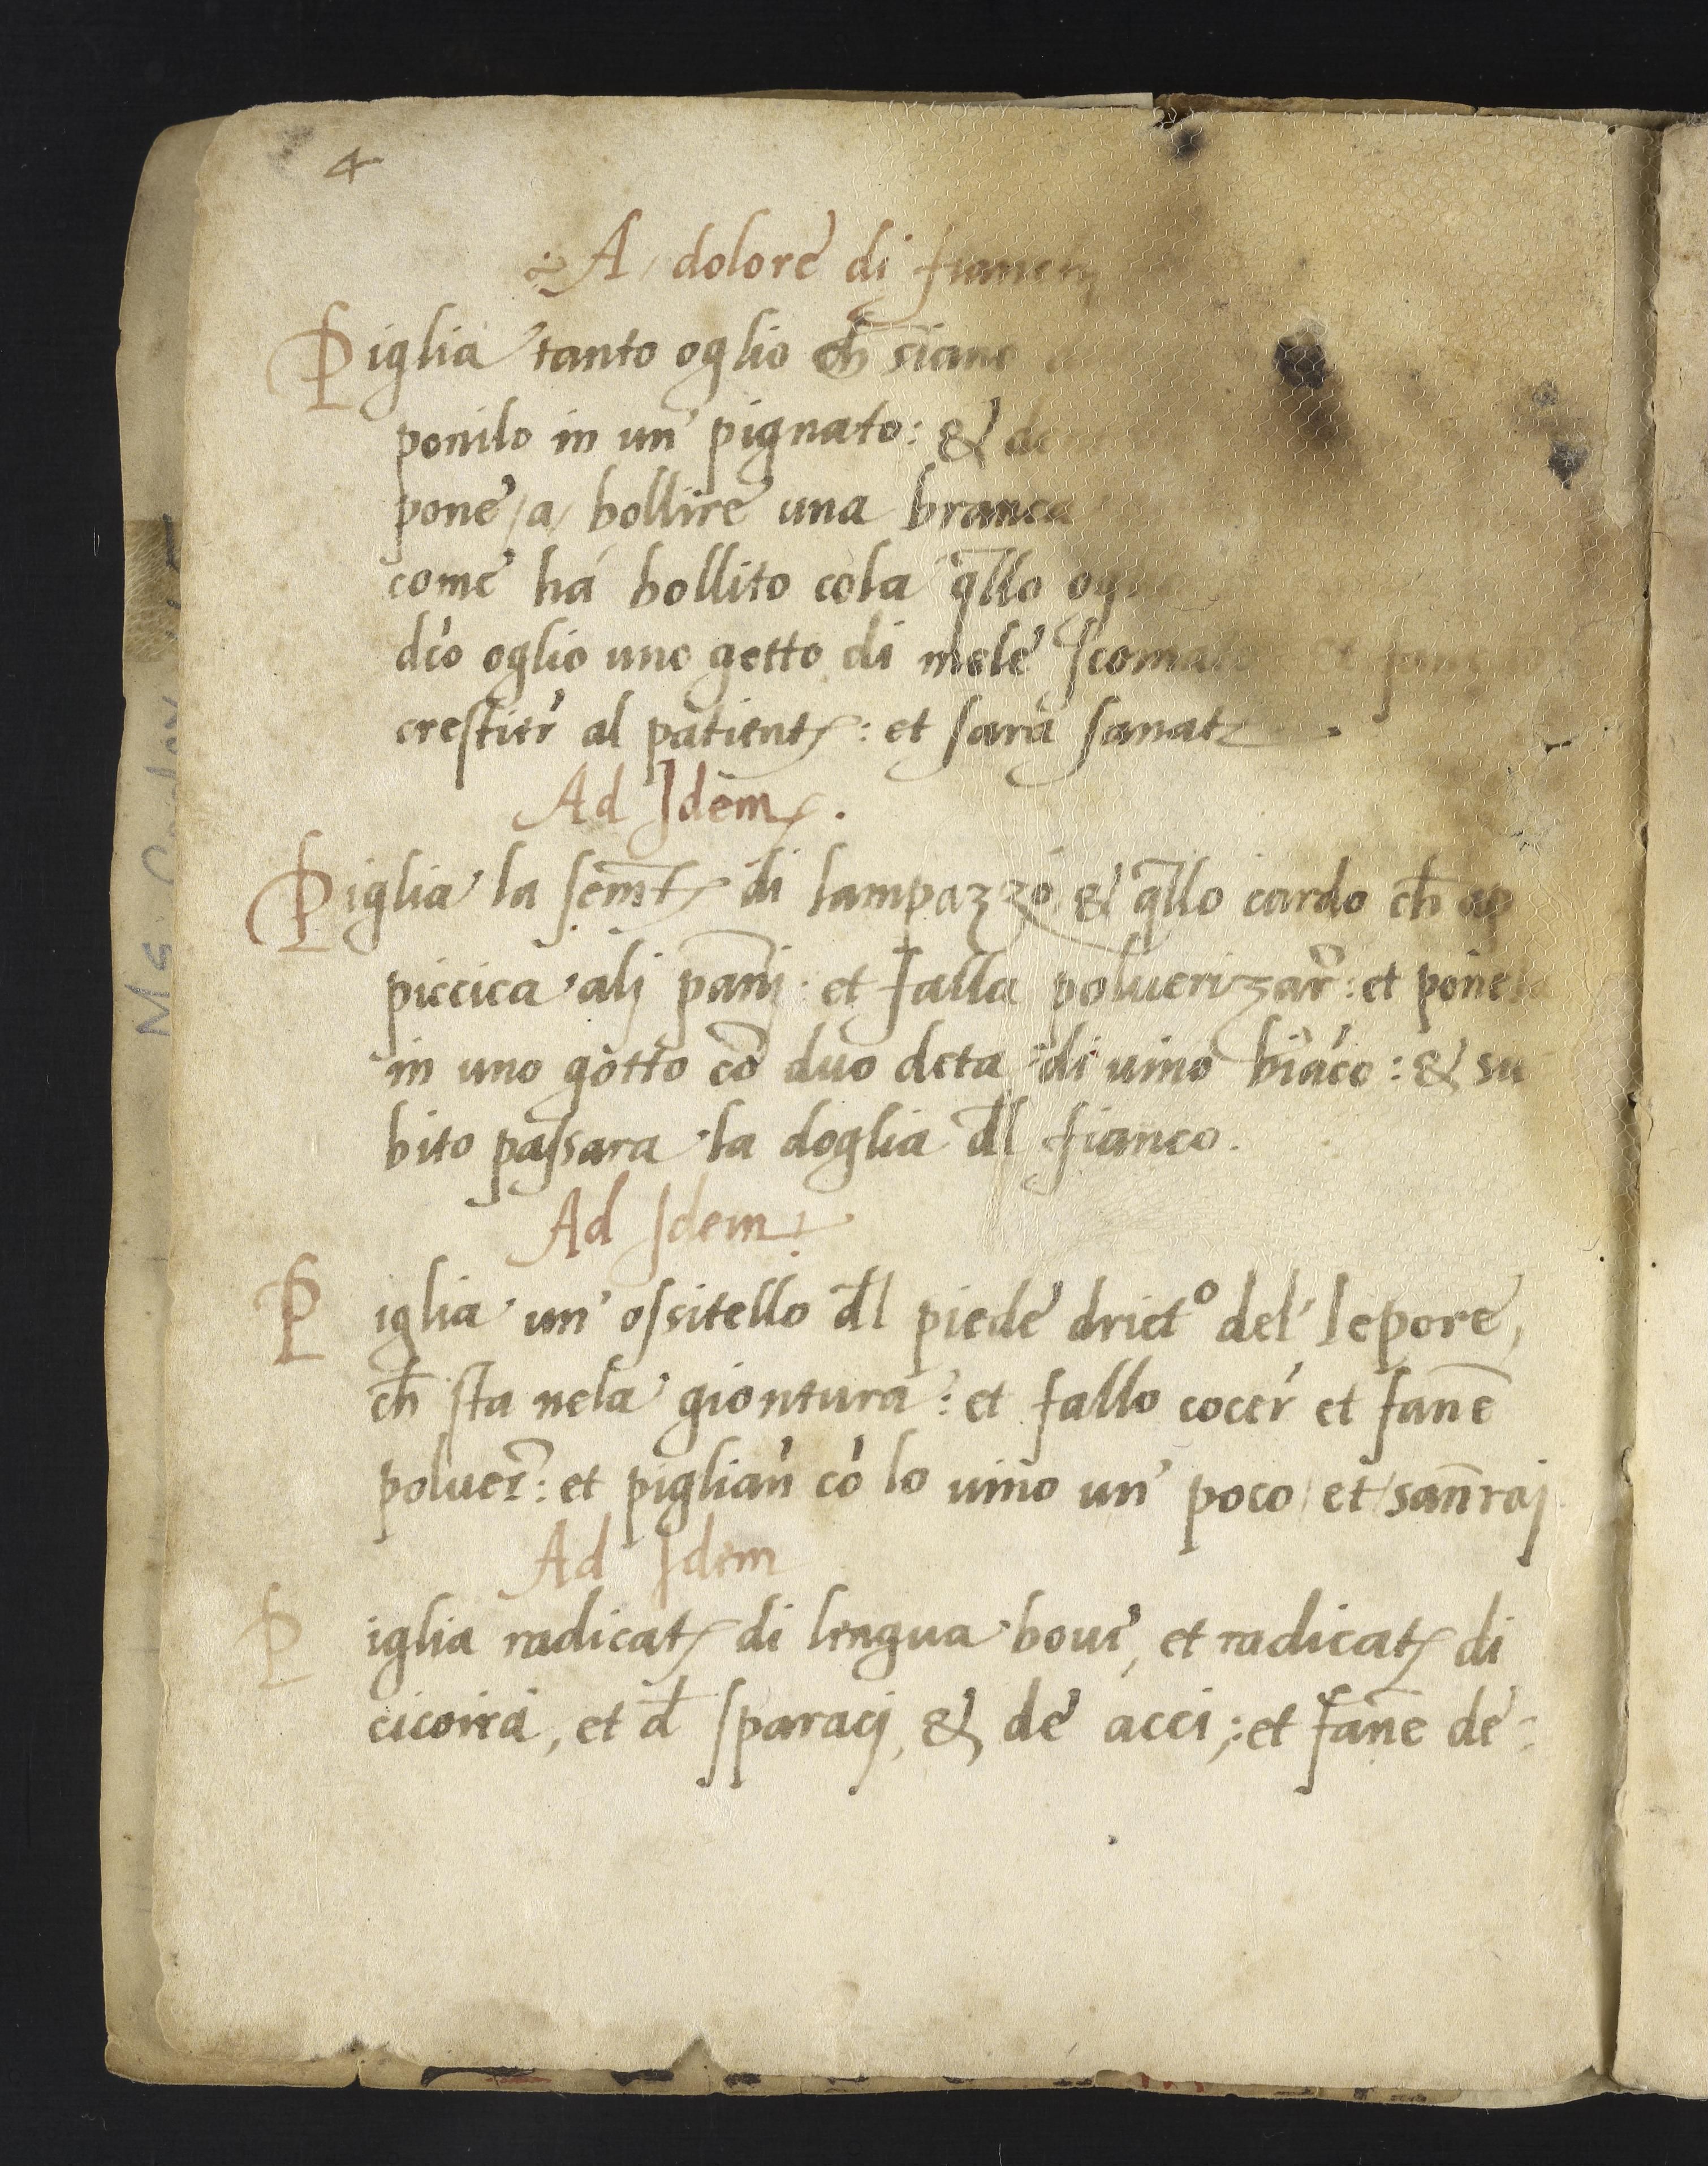 4
A / dolore di
Piglia tanto oglio ch̄ siano
ponilo in un' pignato: &
pone /a/ bollire una branca
come há bollito cola q̄llo
dc̓o oglio uno gotto di mele scomato et
crestier̓ al patiente: et sara sanato.
Ad Idem.
Piglia la sem̄te di lampazzo & q̄llo cardo ch̄ ap
piccica ali pan̄i et falla poluerizar̄: et pone
in uno gotto cō duo deta di uino bia̓co: & su
bito passara la doglia d̄l fianco.
Ad Idem
Piglia un' ossitello d̄l piede drictº del' lepore,
ch̄ sta nela giontura: et fallo cocer̓ et fan̄e
poluer̄: et piglian̓ co̓ lo uino un' poco /et/ san̄raj
Ad Idem
Piglia radicate di lengua boui, et radicate di
cicoira, et d̄ sparaci, & de acci,: et fan̄e de
Ms.